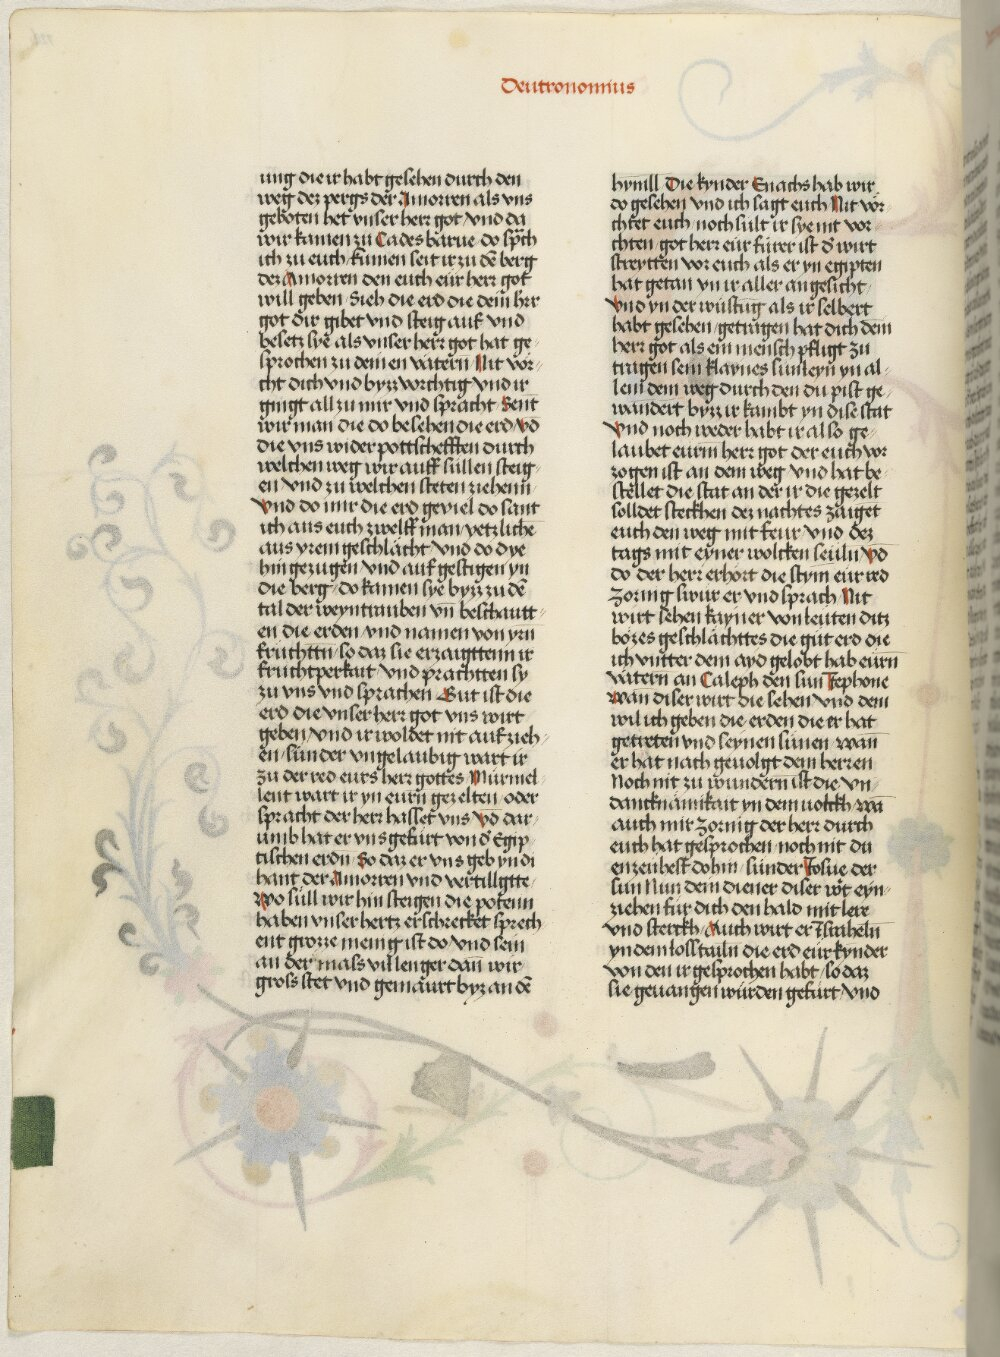 Deutronomius
ung die ir habt gesehen durch den
weg dez pergs der Amorren als vns
geboten het vnser her got vnd da
wir kamen zu Cades barne do spch
ich zu euch kumen seit ir zu dē berg
dez Amorren den euch eur herr got
will geben Sieh die erd die dein hrr
got dir gibet vnd steig auf vnd
besetz sye als vnser herr got hat ge-
sprochen zu deinen vätern Nit vör-
cht dich vnd byzz vorchtig vnd ir
gingt all zu mir vnd spracht Sent
wir man die do besehen die erd vd
die vns wider pottschefften durch
welchen weg wir auff süllen steig-
en vnd zu welchen steten ziehenn
Vnd do mir die erd geviel do sant
ich aus euch zwelff man yetzliche
aus yrem geschlächt vnd do dye
hin gezugen vnd auf gestigen yn
die berg do kamen sye byzz zu dē
tal der weyntrauben vn beschautt-
en die erden vnd namen von yrn
früchttn so daz sie erzaigttenn ir
fruchtperkait vnd prachtten sy
zu vns vnd sprachen Gut ist die
erd die vnser herr got vns wirt
geben vnd ir woldet nit auf zieh-
en sünder vngelaubig wart ir
zu der red eurs herr gottes Mürmel-
lent wart ir yn eurn gezelten oder
spracht der herr hasset vns vd dar-
umb hat er vns gefürt von d Egip-
tischen erdn So daz er vns geb yn di
hant der Amorren vnd vertillgtte
Wo süll wir hin steigen die potenn
haben vnser hertz erschrecket sprech
ent grozze menig ist do vnd sein
an der mass vil lenger dan wir
gross stet vnd gemäurt byz an dē
hymll Die kynder Enachs hab wir
do gesehen vnd ich sagt euch Nit vör-
chtet euch noch sült ir sye nit vor-
chten got herr eür fürer ist d wirt
streytten vor euch als er yn egipten
hat getan vn ir aller angesicht
Vnd yn der wüstūg als ir selbert
habt gesehen getragen hat dich dein
herr got als ein mensch pfligt zu
tragen sein klaynes sünleyn yn al-
lem dem weg durch den du pist ge-
wandert byzz ir kambt yn dise stat
Vnd noch weder habt ir also ge-
laubet eurm herr got der euch vor
zogen ist an dem weg vnd hat be-
stellet die stat an der ir die gezelt
solldet steckhen dez nachtes zaiget
euch den weg mit feür vnd dez
tags mit eyner wolcken seüln vd
do der herr erhort die stym eür red
zornig swur er vnd sprach Nit
wirt sehen kayner von leuten ditz
bözes geschlächttes die güt erd die
ich vntter dem ayd gelobt hab eurn
vätern an Caleph den sun Jephone
wan diser wirt die sehen vnd dem
wil ich geben die erden die er hat
getreten vnd seynen sünen wan
er hat nach gevolgt dem herren
Noch nit zu wundern ist die vn-
danknämikait yn dem uolckh wā
auch mir zornig der herr durch
euch hat gesprochen noch nit du
enzeuhest dohin sünder Josue der
sun Nun dein diener diser wirt eyn-
ziehen für dich den hald mit lere
vnd sterckh Auch wirt er Israheln
yn dem loss tailn die erd eür kynder
von den ir gesprochen habt so daz
sie gevangen würden gefürt vnd